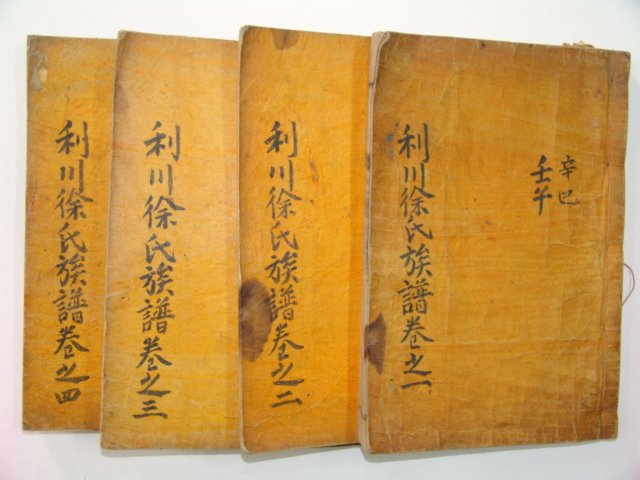 辛巳
壬午
利川徐氏族譜卷之一
利川徐氏族譜卷之二
利川徐氏族譜卷之三
利川徐氏族譜卷之四